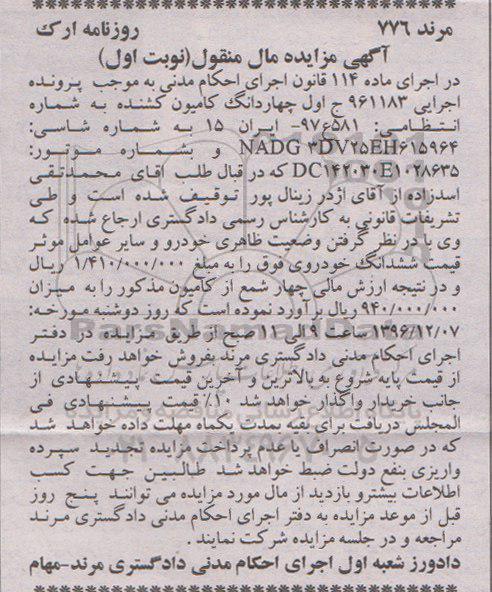 مرند ۷۷۶ روزنامه ارک
آگهی مزایده مال منقول(نوبت اول)
در اجرای ماده ۱۱۴ قانون اجرای احکام مدنی به موجب پرونده
اجرایی ۹۶۱۱۸۳ ج اول چهاردانگ کامیون کشنده به شماره
انتظامی: ۹۷۶۵۸۱- ایران ۱۵ به شماره شاسی:
NADG ۳DV۲۵EH۶۱۵۹۶۴ و بشماره موتور:
DC۱۴۲۰۳۰E۱۰۲۸۶۳۵ که در قبال طلب اقای محمدتقی
اسدزاده از آقای اژدر زینال پور توقیف شده است و طی
تشریفات قانونی به کارشناس رسمی دادگستری ارجاع شده که
وی با در نظر گرفتن وضعیت ظاهری خودرو و سایر عوامل موثر
قیمت ششدانگ خودروی فوق را به مبلغ ۱/۴۱۰/۰۰۰/۰۰۰ ریال
و در نتیجه ارزش مالی چهار شمع از کامیون مذکور را به میزان
۹۴۰/۰۰۰/۰۰۰ ریال برآورد نموده است که روز دوشنبه مورخه:
۱۳۹۶/۱۲/۰۷ ساعت ۹ الی ۱۱ صبح از طریق مزایده در دفتر
اجرای احکام مدنی دادگستری مرند بفروش خواهد رفت مزایده
از قیمت پایه شروع به بالاترین و آخرین قیمت پیشنهادی از
جانب خریدار واگذار خواهد شد ۱۰٪ قیمت پیشنهادی فی
المجلس دریافت برای بقیه بمدت یکماه مهلت داده خواهد شد
که در صورت انصراف یا عدم پرداخت مزایده تجدید سپرده
واریزی بنفع دولت ضبط خواهد شد طالبین جهت کسب
اطلاعات بیشترو بازدید از مال مورد مزایده می توانند پنج روز
قبل از موعد مزایده به دفتر اجرای احکام مدنی دادگستری مرند
مراجعه و در جلسه مزایده شرکت نمایند .
دادورز شعبه اول اجرای احکام مدنی دادگستری مرند-مهام
ParsNamadData